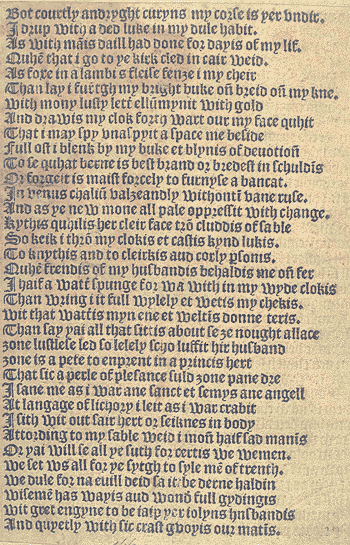 Bot courtly and ryght curyns my corse is yer vndir.
I drup with a ded luke in my dule habit.
As with mãis daill had done for dayis of my lif.
Quhẽ that i go to ye kirk cled in cair weid.
As foxe in a lambis fleise fenze i my cheir
Than lay i furtgh my bright buke on breid oñ my kne.
with mony lusty lett ellũmynit with gold
And drawis my clok fortq wart our my face quhit
That i may spy vnaspyit a space me beside
Full oft i blenk by my buke et blynis of deuotioñ
To se quhat berne is best brand or bredest in schuldis
Or forgeit is maist forcely to furnyse a bancat.
In venus chalin valzeandly withontt vane ruse.
And as ye new mone all pale oppressit with change.
kythis quhilis her cleir face trõ cluddis of sable
So keik i thrõ my clokis et castis kynd lukis.
To knythis and to cleirkis aud corly psomis.
Quhẽ frendis of my husbandis behaldis me oñ fer
I haif a wat spunge for wa with in my wyde clokis
Than wring i it full wylely et wetis my chekis.
wit that wattis myn ene et weltis donne teris.
Than say yai all that sittis about se ze nought allace
zone lustlese led so lelely scho luffit hir husband
zone is a pete to enprent in a princis hert
That sic a perle of plesance suld zone pane dre
I sane me as i war ane sanct et semys ane angell
At langage of lichory i leit as i war crabit
I sith wit out sair hert or seiknes in body
According to my sable weid i moñ haif sad maneris
Or yai will se all ye suth for certis we wemen.
we set ws all for ye sytgh to syle mẽ of trenth.
we dule for na euill deid sa it be derne haldin
wisemẽ has wayis aud wondẽ full gydingis
wit gret engyne to be iaip yer iolyns hnsbandis
And quyetly with sic crast gvoyis our matis.